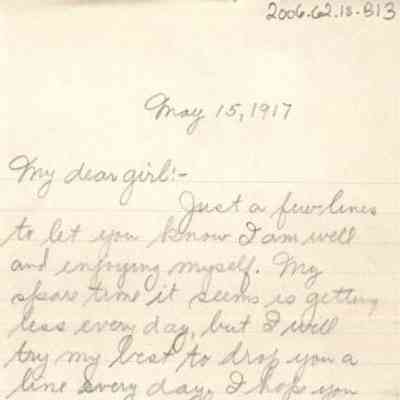 2006.62.18-B13
May 15, 1917
My dear girl:-
Just a few lines
to let you know I am well
and enjoying myself. My
spare time it seems is getting
less every day, but I will
try my best to drop you a
line every day. I hope you